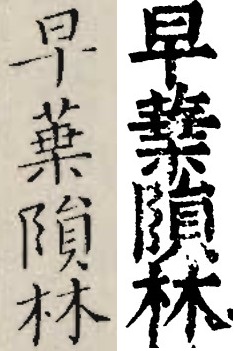 早葉隕林
早葉隕林